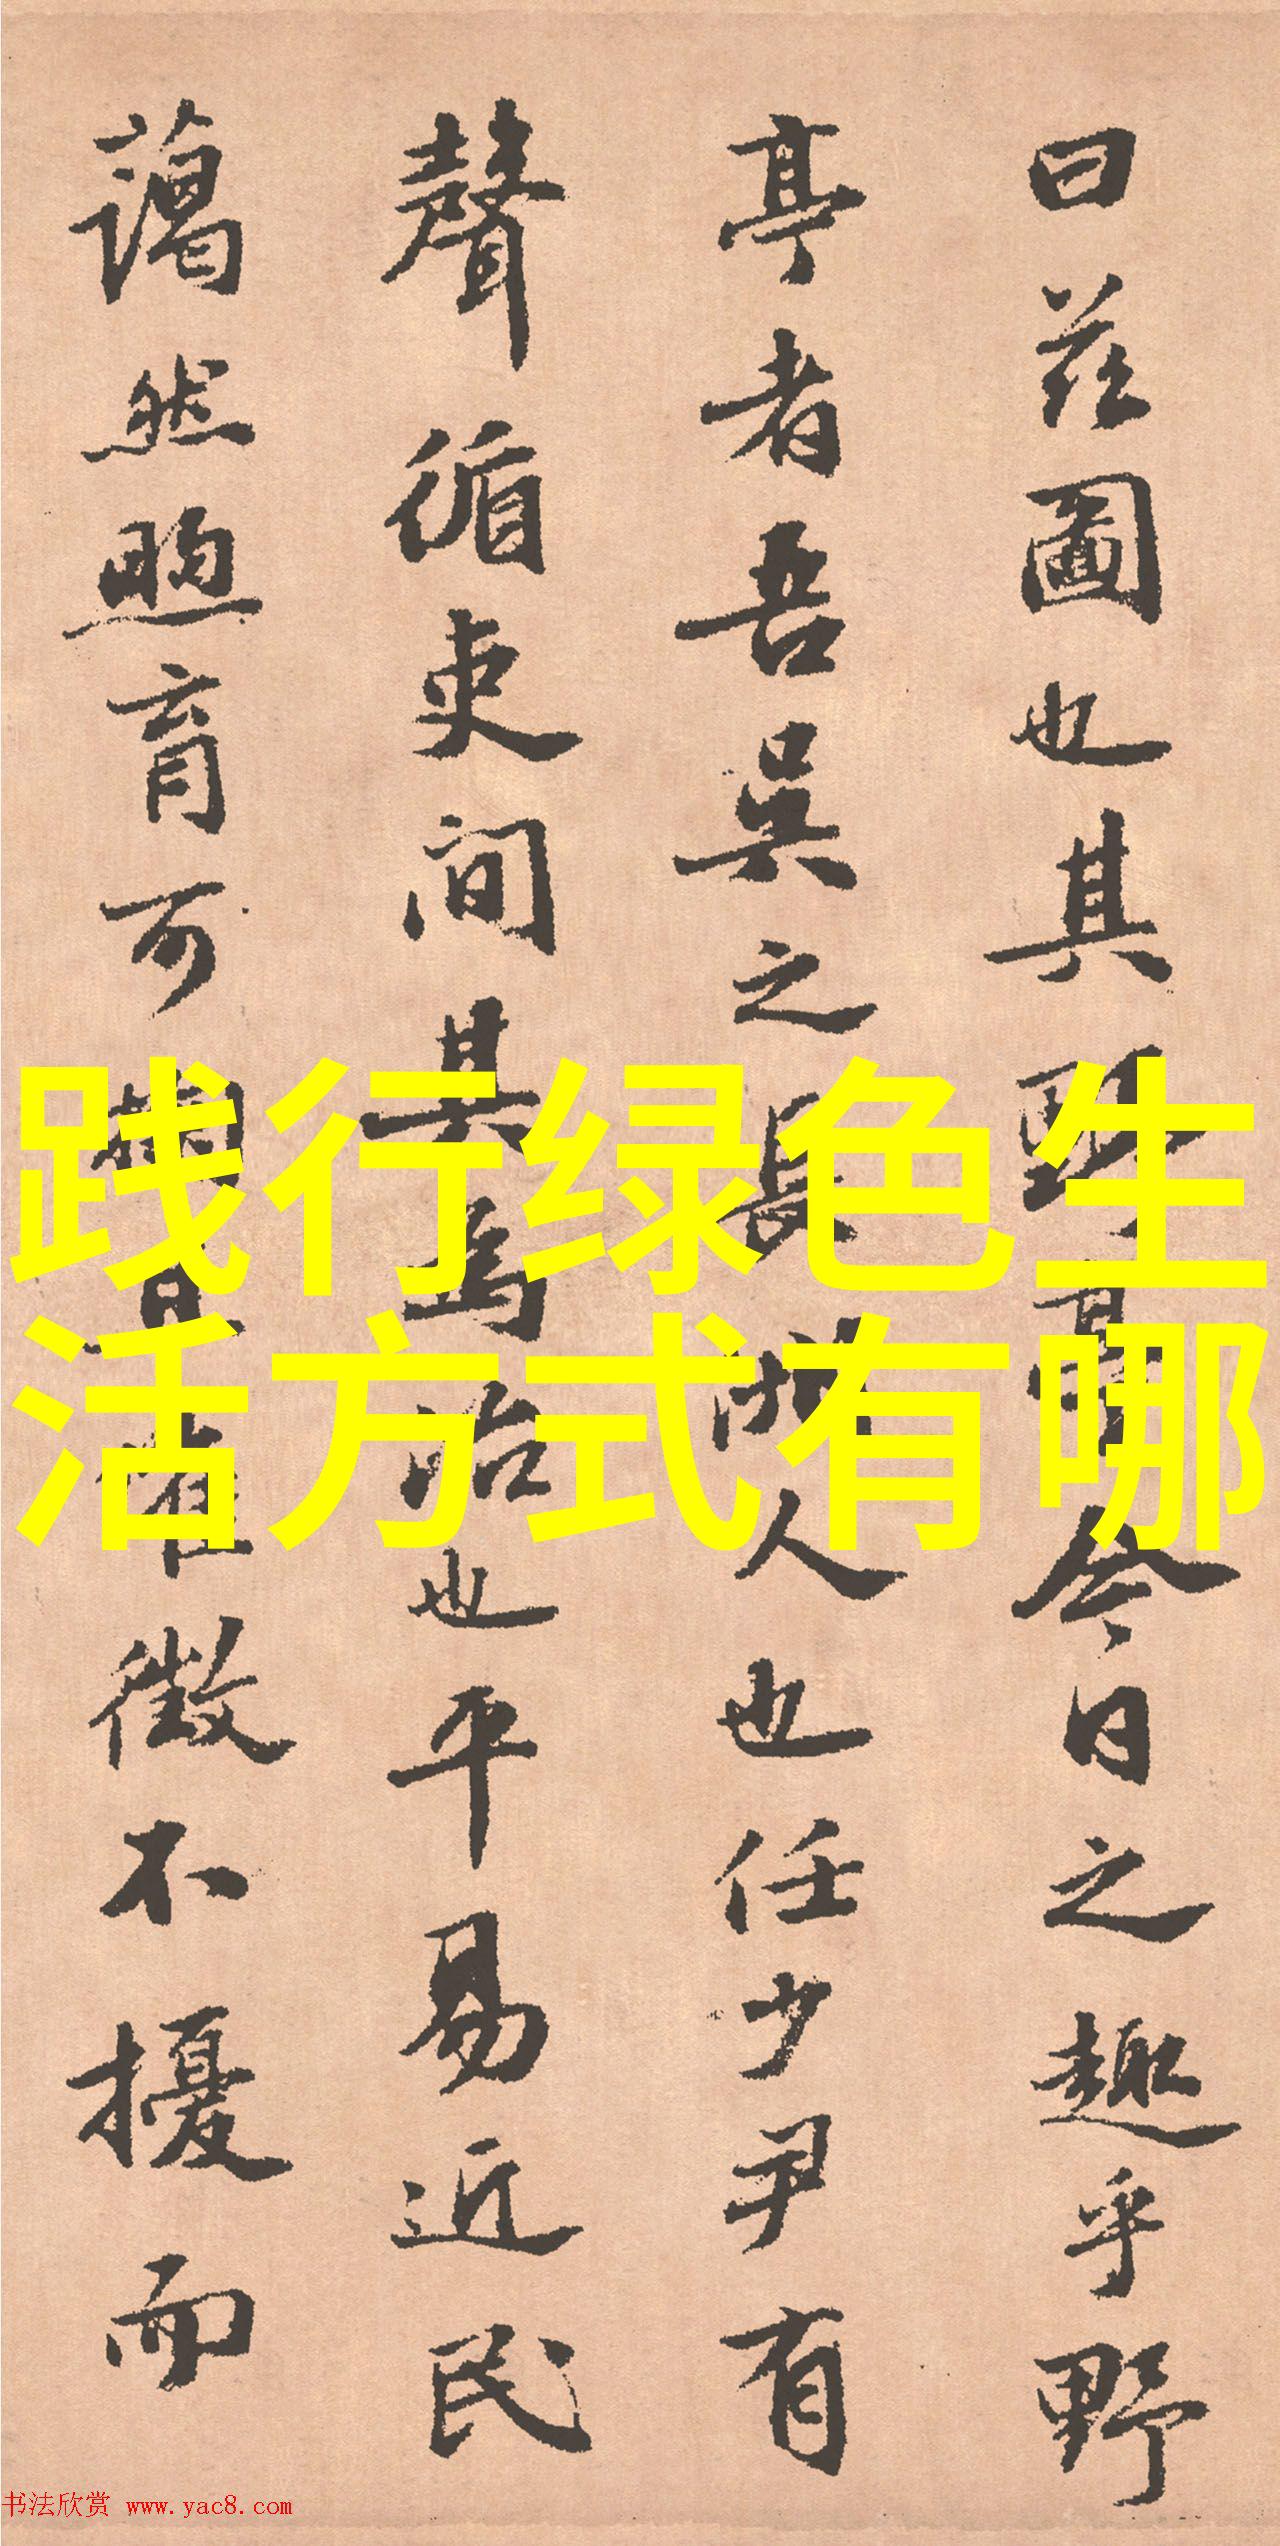 曰茲圖也其野亭今日之趣乎野
亭者吾吳之長洲人也任少尹有
聲循吏間其為治也平易近民
藹然煦育可徵不擾而
践行绿色生
活方式有哪
书法欣赏 www.yac8.com